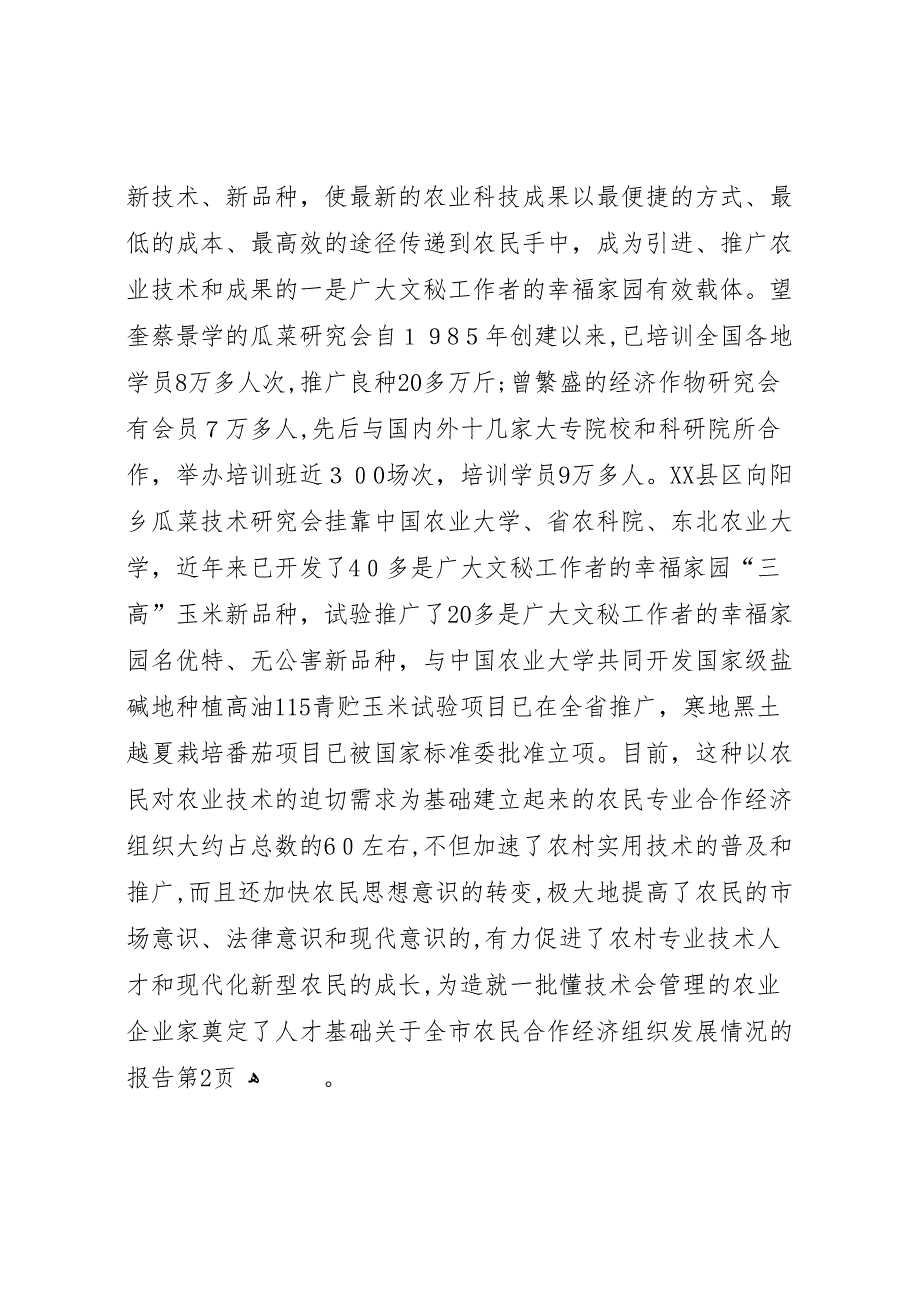 新技术、新品种，使最新的农业科技成果以最便捷的方式、最
低的成本、最高效的途径传递到农民手中，成为引进、推广农
业技术和成果的一是广大文秘工作者的幸福家园有效载体。望
奎蔡景学的瓜菜研究会自１９85年创建以来,已培训全国各地
学员8万多人次,推广良种20多万斤;曾繁盛的经济作物研究会
有会员７万多人,先后与国内外十几家大专院校和科研院所合
作，举办培训班近３００场次，培训学员9万多人。XX县区向阳
乡瓜菜技术研究会挂靠中国农业大学、省农科院、东北农业大
学，近年来已开发了4０多是广大文秘工作者的幸福家园“三
高”玉米新品种，试验推广了20多是广大文秘工作者的幸福家
园名优特、无公害新品种，与中国农业大学共同开发国家级盐
碱地种植高油115青贮玉米试验项目已在全省推广，寒地黑土
越夏栽培番茄项目已被国家标准委批准立项。目前，这种以农
民对农业技术的迫切需求为基础建立起来的农民专业合作经济
组织大约占总数的6０左右,不但加速了农村实用技术的普及和
推广,而且还加快农民思想意识的转变,极大地提高了农民的市
场意识、法律意识和现代意识的,有力促进了农村专业技术人
才和现代化新型农民的成长,为造就一批懂技术会管理的农业
企业家奠定了人才基础关于全市农民合作经济组织发展情况的
报告第2页 。